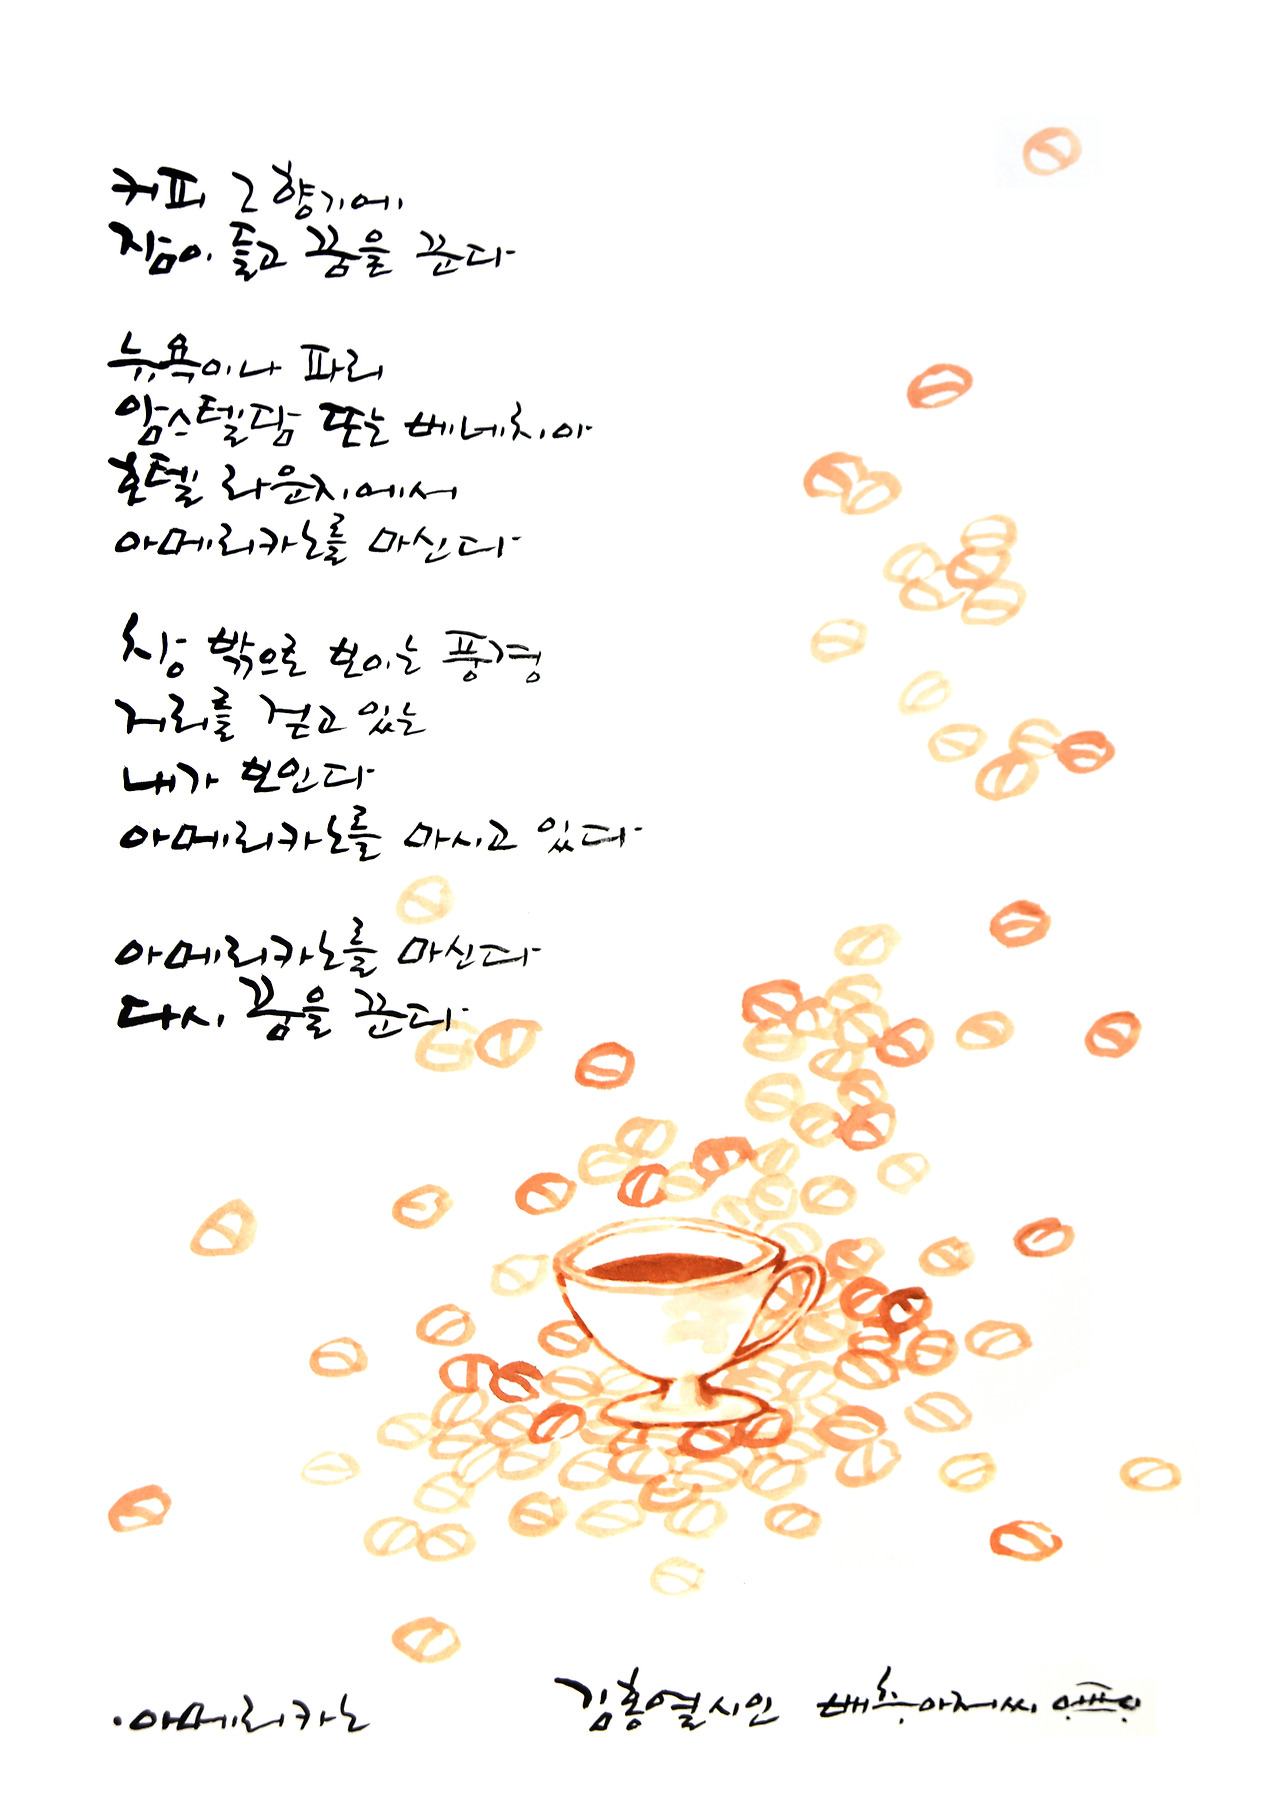 커피 그 향기에
잠이 들고 꿈을 꾼다
뉴욕이나 파리
암스텔담 또는 베네치아
호텔 라운지에서
아메리카노를 마신다
창 밖으로 보이는 풍경
거리를 걷고 있는
내가 보인다
아메리카노를 마시고 있다
아메리카노를 마신다
다시 꿈을 꾼다
·아메리카노
김홍열시인 배추아저씨